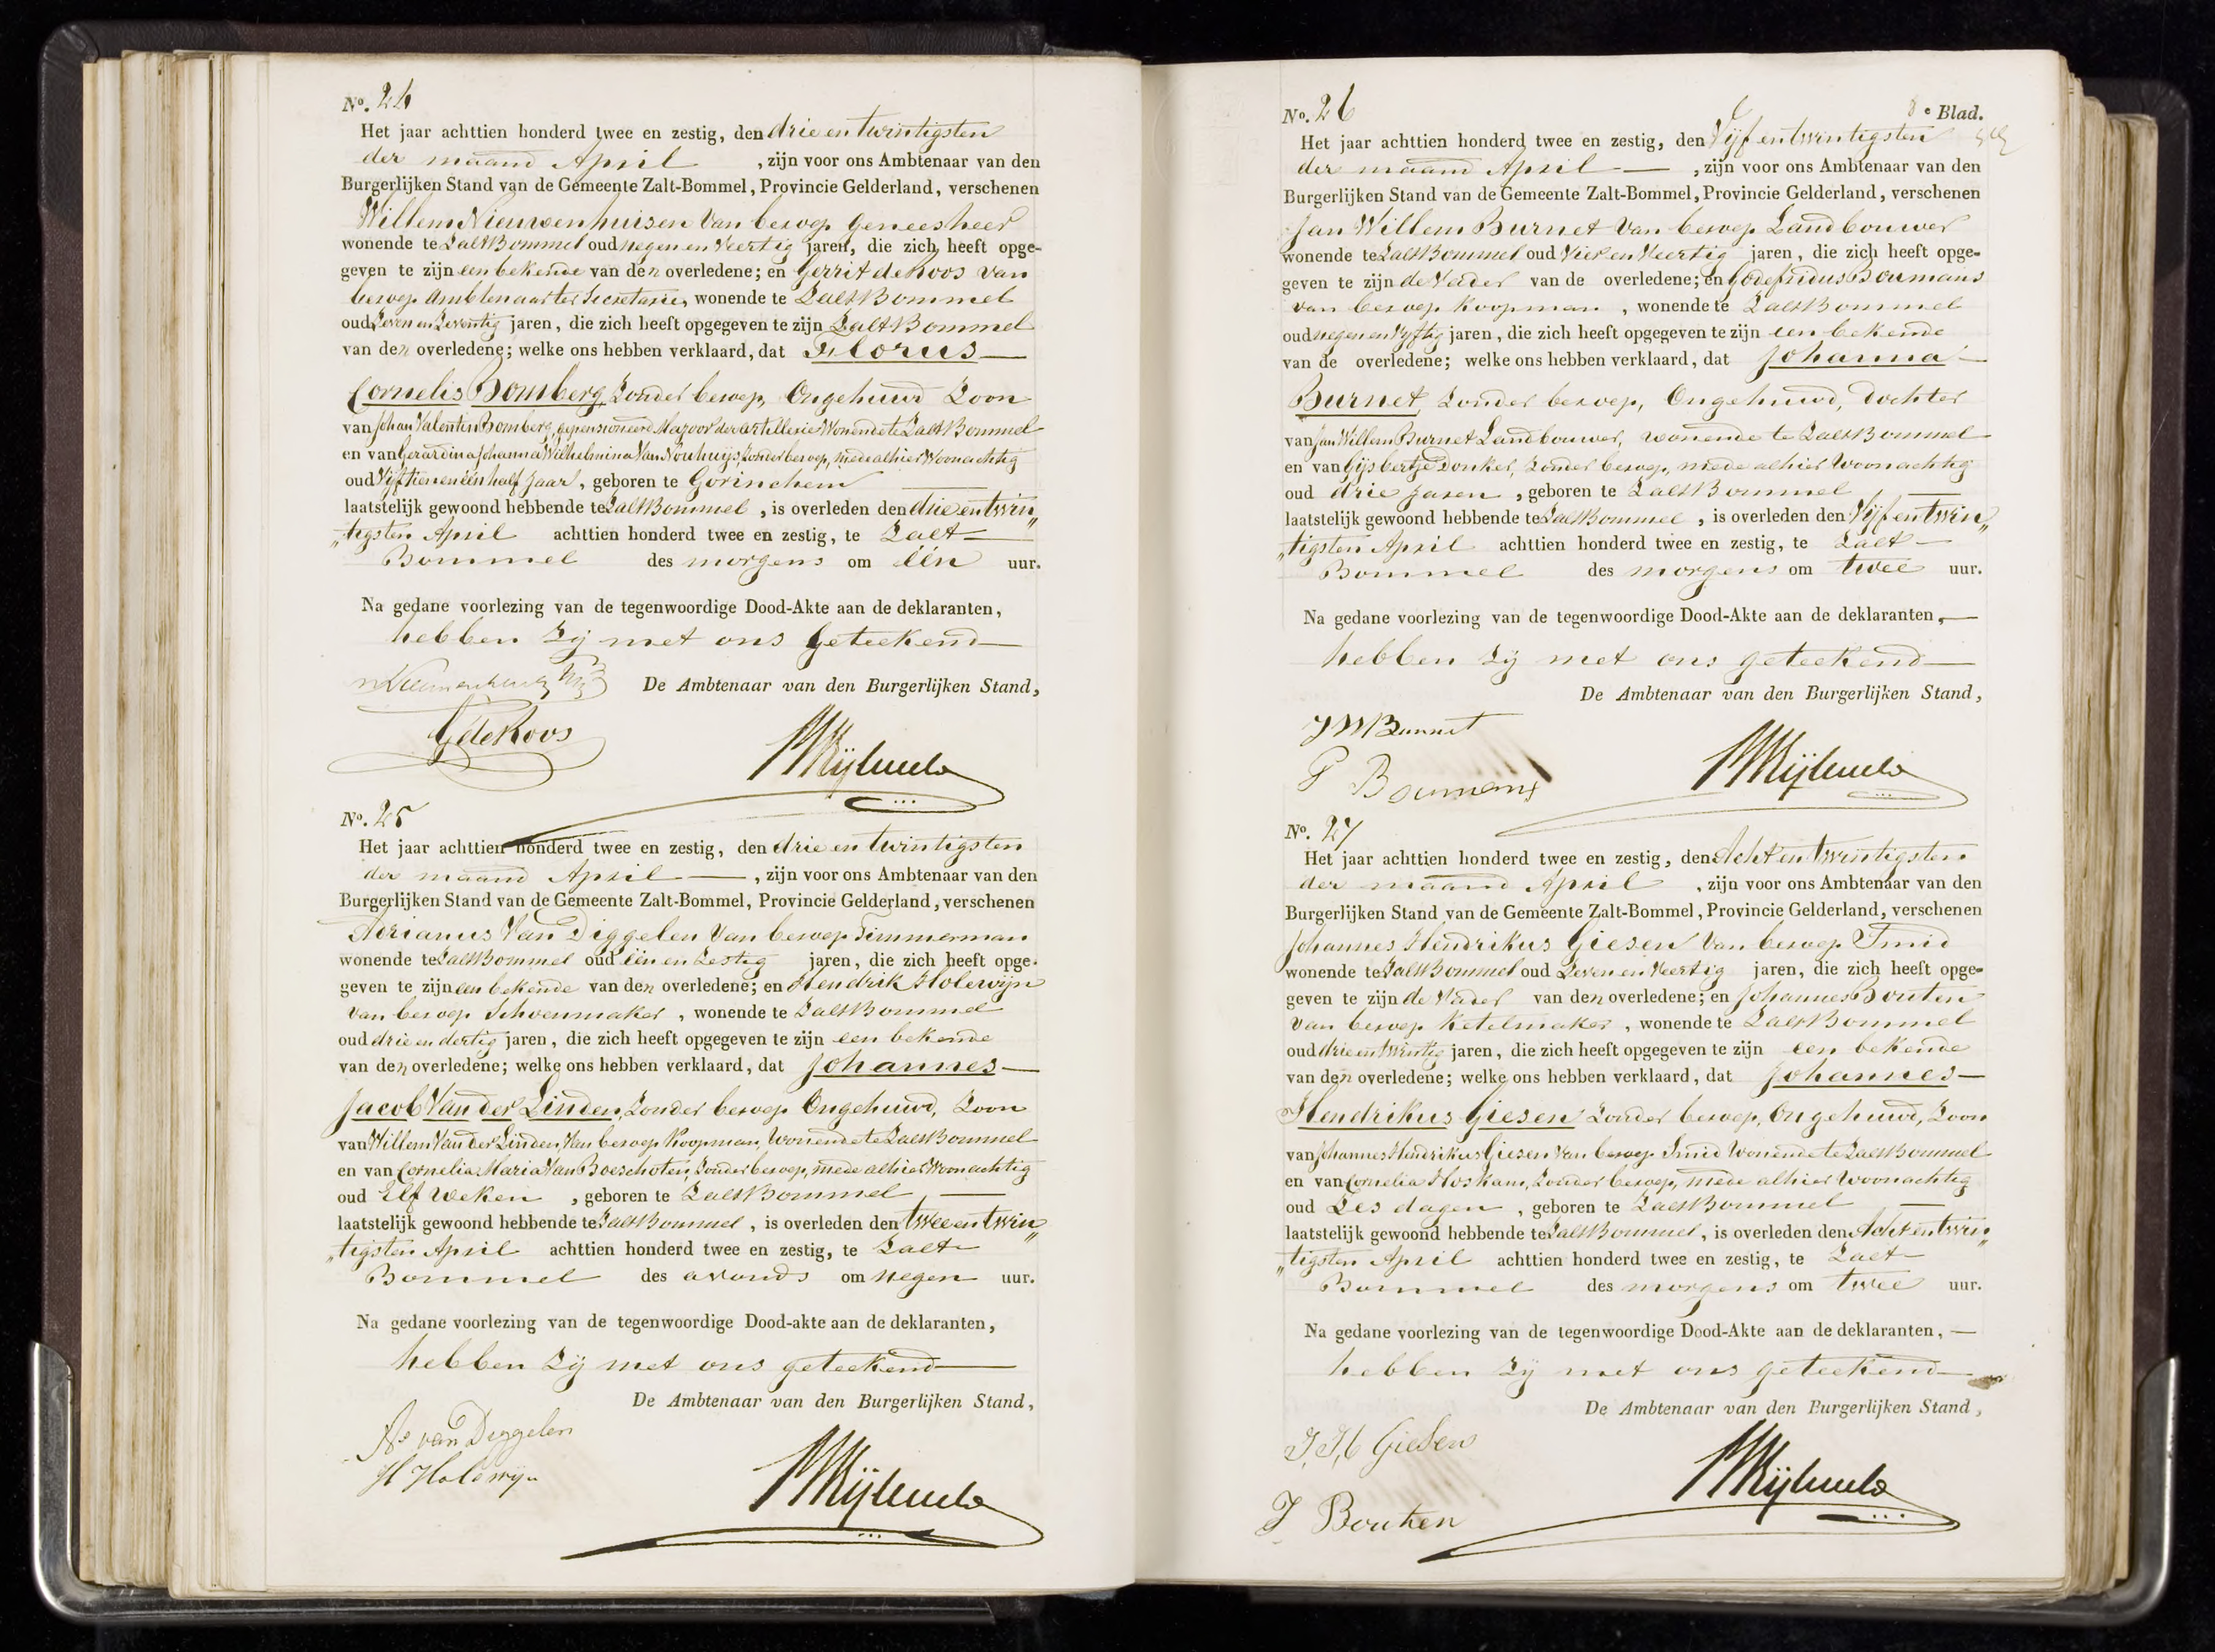 No. 24
Het jaar achttien honderd twee en zestig, den drie en twintigsten
der maand April , zijn voor ons Ambtenaar van den
Burgerlijken Stand van de Gemeente Zalt-Bommel, Provincie Gelderland, verschenen
Willem Nieuwenhuisen van beroep Geneesheer
wonende te ZaltBommel oud negen en Veertig jaren, die zich heeft opge-
geven te zijn een bekende van den overledene; en Gerrit de Koos van
beroep Ambtenaar ter Secretarie, wonende te ZaltBommel
oud Zeven en Zeventig jaren, die zich heeft opgegeven te zijn ZaltBommel
van den overledene; welke ons hebben verklaard, dat Florus
Cornelis Bomberg, Zonder beroep, Ongehuwd Zoon
van Johan Valentin Bomberg, gepensioneerd Majoor der artillerie Wonende te Zalt Bommel
en van Gerardina Johanna Wilhelmina Van Nouhuijs, zonder beroep, mede alhier Woonachtig
oud Vijftien en één half Jaar, geboren te Gorinchem
laatstelijk gewoond hebbende te ZaltBommel, is overleden den drie en twin„
„tigsten April achttien honderd twee en zestig, te Zalt
Bommel des morgens om één uur.
Na gedane voorlezing van de tegenwoordige Dood-Akte aan de deklaranten,
hebben zij met ons geteekend
De Ambtenaar van den Burgerlijken Stand,
G de Koos
No. 25
Het jaar achttien honderd twee en zestig, den drie en twintigsten
der maand April , zijn voor ons Ambtenaar van den
Burgerlijken Stand van de Gemeente Zalt-Bommel, Provincie Gelderland, verschenen
Adrianus Van Diggelen Van beroep Timmerman
wonende te ZaltBommel oud één en Zestig jaren, die zich heeft opge-
geven te zijn een bekende van den overledene; en Hendrik Holewijn
Van beroep Schoenmaker , wonende te ZaltBommel
oud drie en dertig jaren, die zich heeft opgegeven te zijn een bekende
van den overledene; welke ons hebben verklaard, dat Johannes
Jacob Van der Linden, Zonder beroep Ongehuwd, Zoon
van Willem Van der Linden, Van beroep Koopman, Wonende te ZaltBommel
en van Cornelia Maria Van Boeschoten, Zonder beroep, mede alhier Woonachtig
oud Elf Weken , geboren te ZaltBommel
laatstelijk gewoond hebbende te ZaltBommel, is overleden den twee en twin„
„tigsten April achttien honderd twee en zestig, te Zalt
Bommel des avonds om negen uur.
Na gedane voorlezing van de tegenwoordige Dood-akte aan de deklaranten,
hebben zij met ons geteekend
De Ambtenaar van den Burgerlijken Stand,
As van Diggelen
H Holewijn
8e Blad.
No. 26
Het jaar achttien honderd twee en zestig, den Vijf en twintigsten
der maand April , zijn voor ons Ambtenaar van den
Burgerlijken Stand van de Gemeente Zalt-Bommel, Provincie Gelderland, verschenen
Jan Willem Burnet Van beroep Landbouwer
wonende te ZaltBommel oud Vier en Veertig jaren, die zich heeft opge-
geven te zijn de Vader van de overledene; en Godefridus Boumans
van beroep Koopman , wonende te ZaltBommel
oud negen en Vijftig jaren, die zich heeft opgegeven te zijn een bekende
van de overledene; welke ons hebben verklaard, dat Johanna
Burnet, Zonder beroep, Ongehuwd, Dochter
van Jan Willem Burnet Landbouwer, wonende te ZaltBommel
en van Gijsbertje Donker, Zonder beroep, mede alhier Woonachtig
oud drie Jaren , geboren te ZaltBommel
laatstelijk gewoond hebbende te ZaltBommel , is overleden den Vijf en twin„
„tigsten April achttien honderd twee en zestig, te Zalt
Bommel des morgens om twee uur.
Na gedane voorlezing van de tegenwoordige Dood-Akte aan de deklaranten,
hebben zij met ons geteekend
De Ambtenaar van den Burgerlijken Stand,
J W Burnet
G Boumans
No. 27
Het jaar achttien honderd twee en zestig, den Acht en twintigsten
der maand April , zijn voor ons Ambtenaar van den
Burgerlijken Stand van de Gemeente Zalt-Bommel, Provincie Gelderland, verschenen
Johannes Hendrikus Giesen Van beroep Smid
wonende te ZaltBommel oud Zeven en Veertig jaren, die zich heeft opge-
geven te zijn de Vader van den overledene; en Johannes Bouten
Van beroep Ketelmaker , wonende te ZaltBommel
oud drie en twintig jaren, die zich heeft opgegeven te zijn een bekende
van den overledene; welke ons hebben verklaard, dat Johannes
Hendrikus Giesen Zonder beroep, Ongehuwd, Zoon
van Johannes Hendrikus Giesen Van beroep Smid Wonende te ZaltBommel
en van Cornelia Hoskam, Zonder beroep, mede alhier Woonachtig
oud Zes dagen , geboren te ZaltBommel
laatstelijk gewoond hebbende te ZaltBommel, is overleden den Acht en twin„
„tigsten April achttien honderd twee en zestig, te Zalt
Bommel des morgens om twee uur.
Na gedane voorlezing van de tegenwoordige Dood-Akte aan de deklaranten,
hebben zij met ons geteekend
De Ambtenaar van den Burgerlijken Stand,
J. H. Giesen
J Bouten